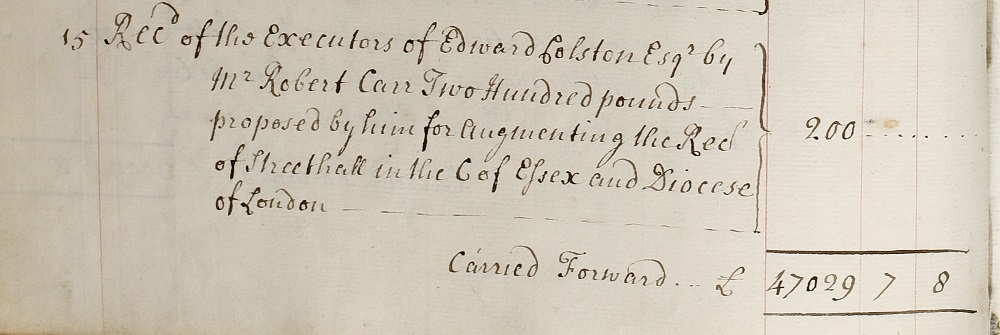 15 Rec.d of the Executors of Edward Colston Esq.r by
M.r Robert Carr Two Hundred pounds
proposed by him for Augmenting the Rec.
of Streethall in the C of Essex and Diocese
of London
200
Carried Forward... £ 47029 7 8